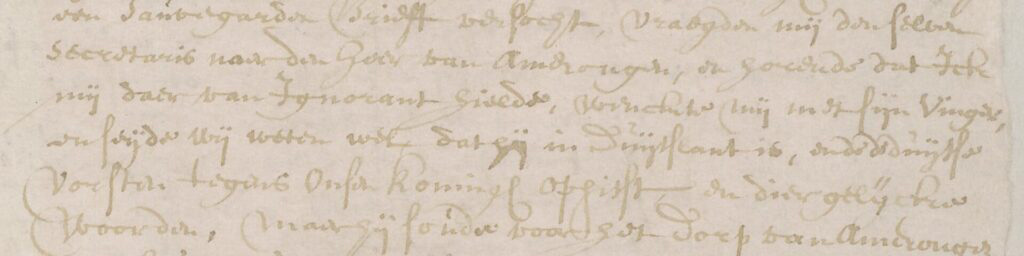 een Sauvegarden Brieff versocht, vraegden mij den selven
Secretaris naer den heer van Amerongen, en horende dat Ick
mij daer van Ignorant hielde, wenckte mij met sijn Vinger,
en seijde wij weten wel dat hij in Duijtslant is, ende duijtse
Vorsten tegens Onsen Koningh ophitst en diergelijcke
Woorden, maer hij soude voor het Dorp van Amerongen